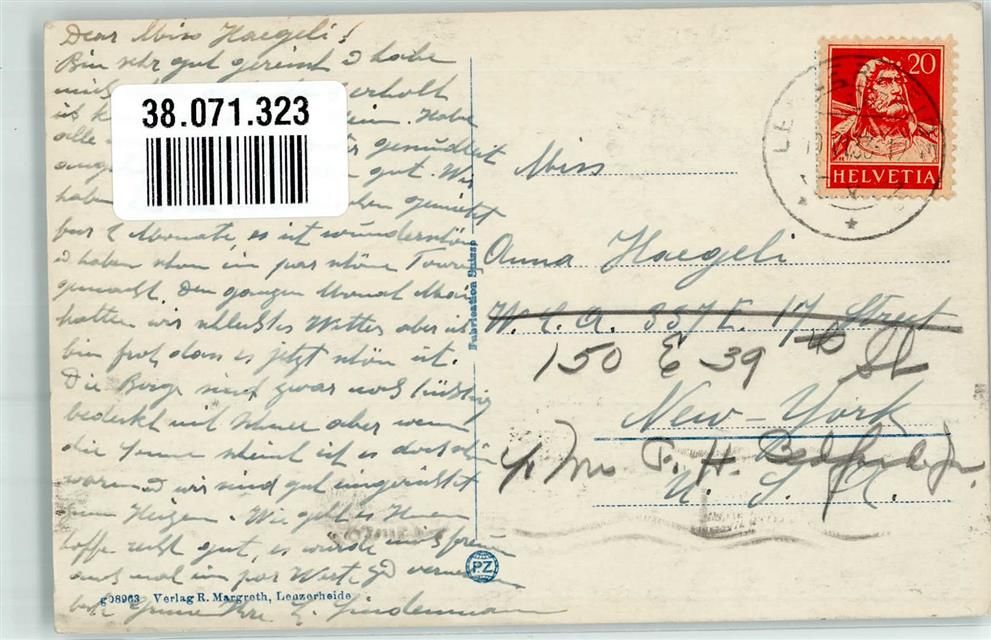 Dear Miss Haegeli!
Bin sehr gut gereist & habe
erholt
ist Habe
alle
gut. Wir
haben
fur 2 Monate, es ist wunderschön
& haben schon im par schöne Touren
gemacht. Den ganzen Monat Mai
hatten wir schlechtes Wetter aber ich
bin froh dass es jetzt schön ist.
Die Berge sind zwar noch tüchtig
bedeckt mit Schnee aber wenn
die Sonne scheint ist es doch schön
warm & wir sind gut eingerichtet
zum Heizen. Wie geht es Ihnen
hoffe recht gut, es würde mich freuen
auch mal im par Worte zu vernehmen
beste Grüsse Ihre L. Lindenmann
g08963 Verlag R. Margreth, Lenzerheide
38.071.323
Fabrication Suisse
PZ
20
HELVETIA
Miss
Anna Haegeli
W. C. A. 337 E. 17 Street
150 E 39 th St
New-York
c/o Mrs F. H. Bedford Jr.
U. S. A.